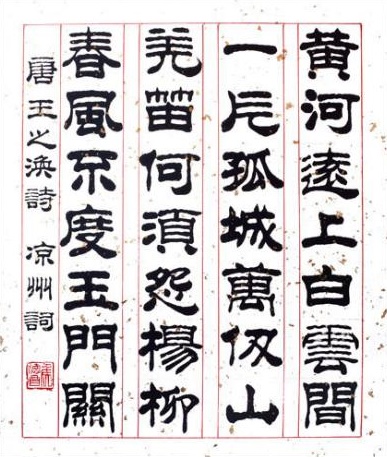 黃河遠上白雲間
一片孤城萬仞山
羌笛何須怨楊柳
春風不度玉門關
唐王之渙詩 涼州詞